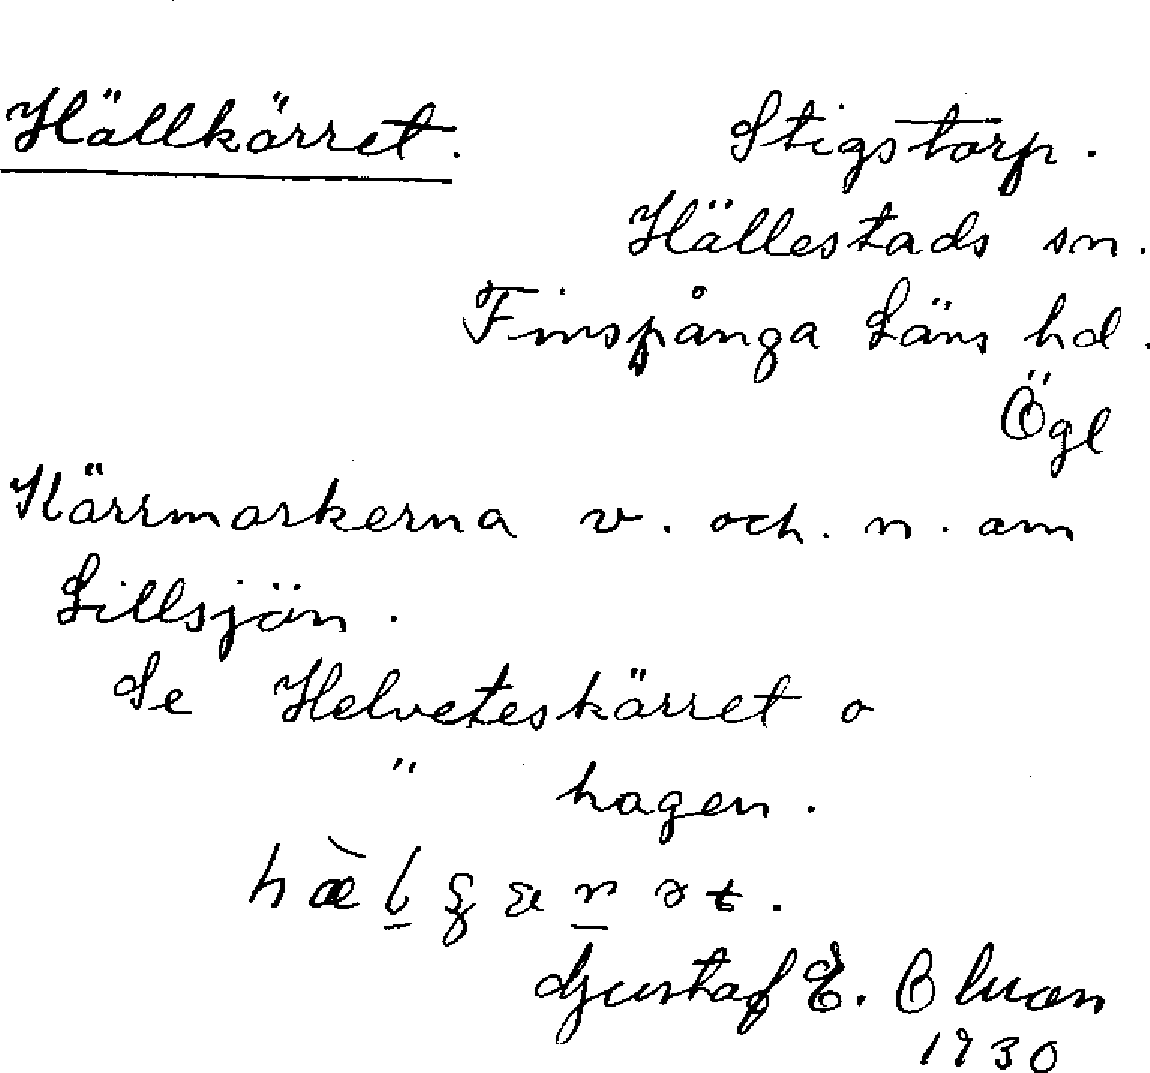 Hällkärret.
Stigstorp.
Hällestads sn.
Finspånga Läns hd.
Ögl
Kärrmarkerna v. och. n. om
Lillsjön.
Se Helveteskärret o
" hagen.
Gustaf E.
1930